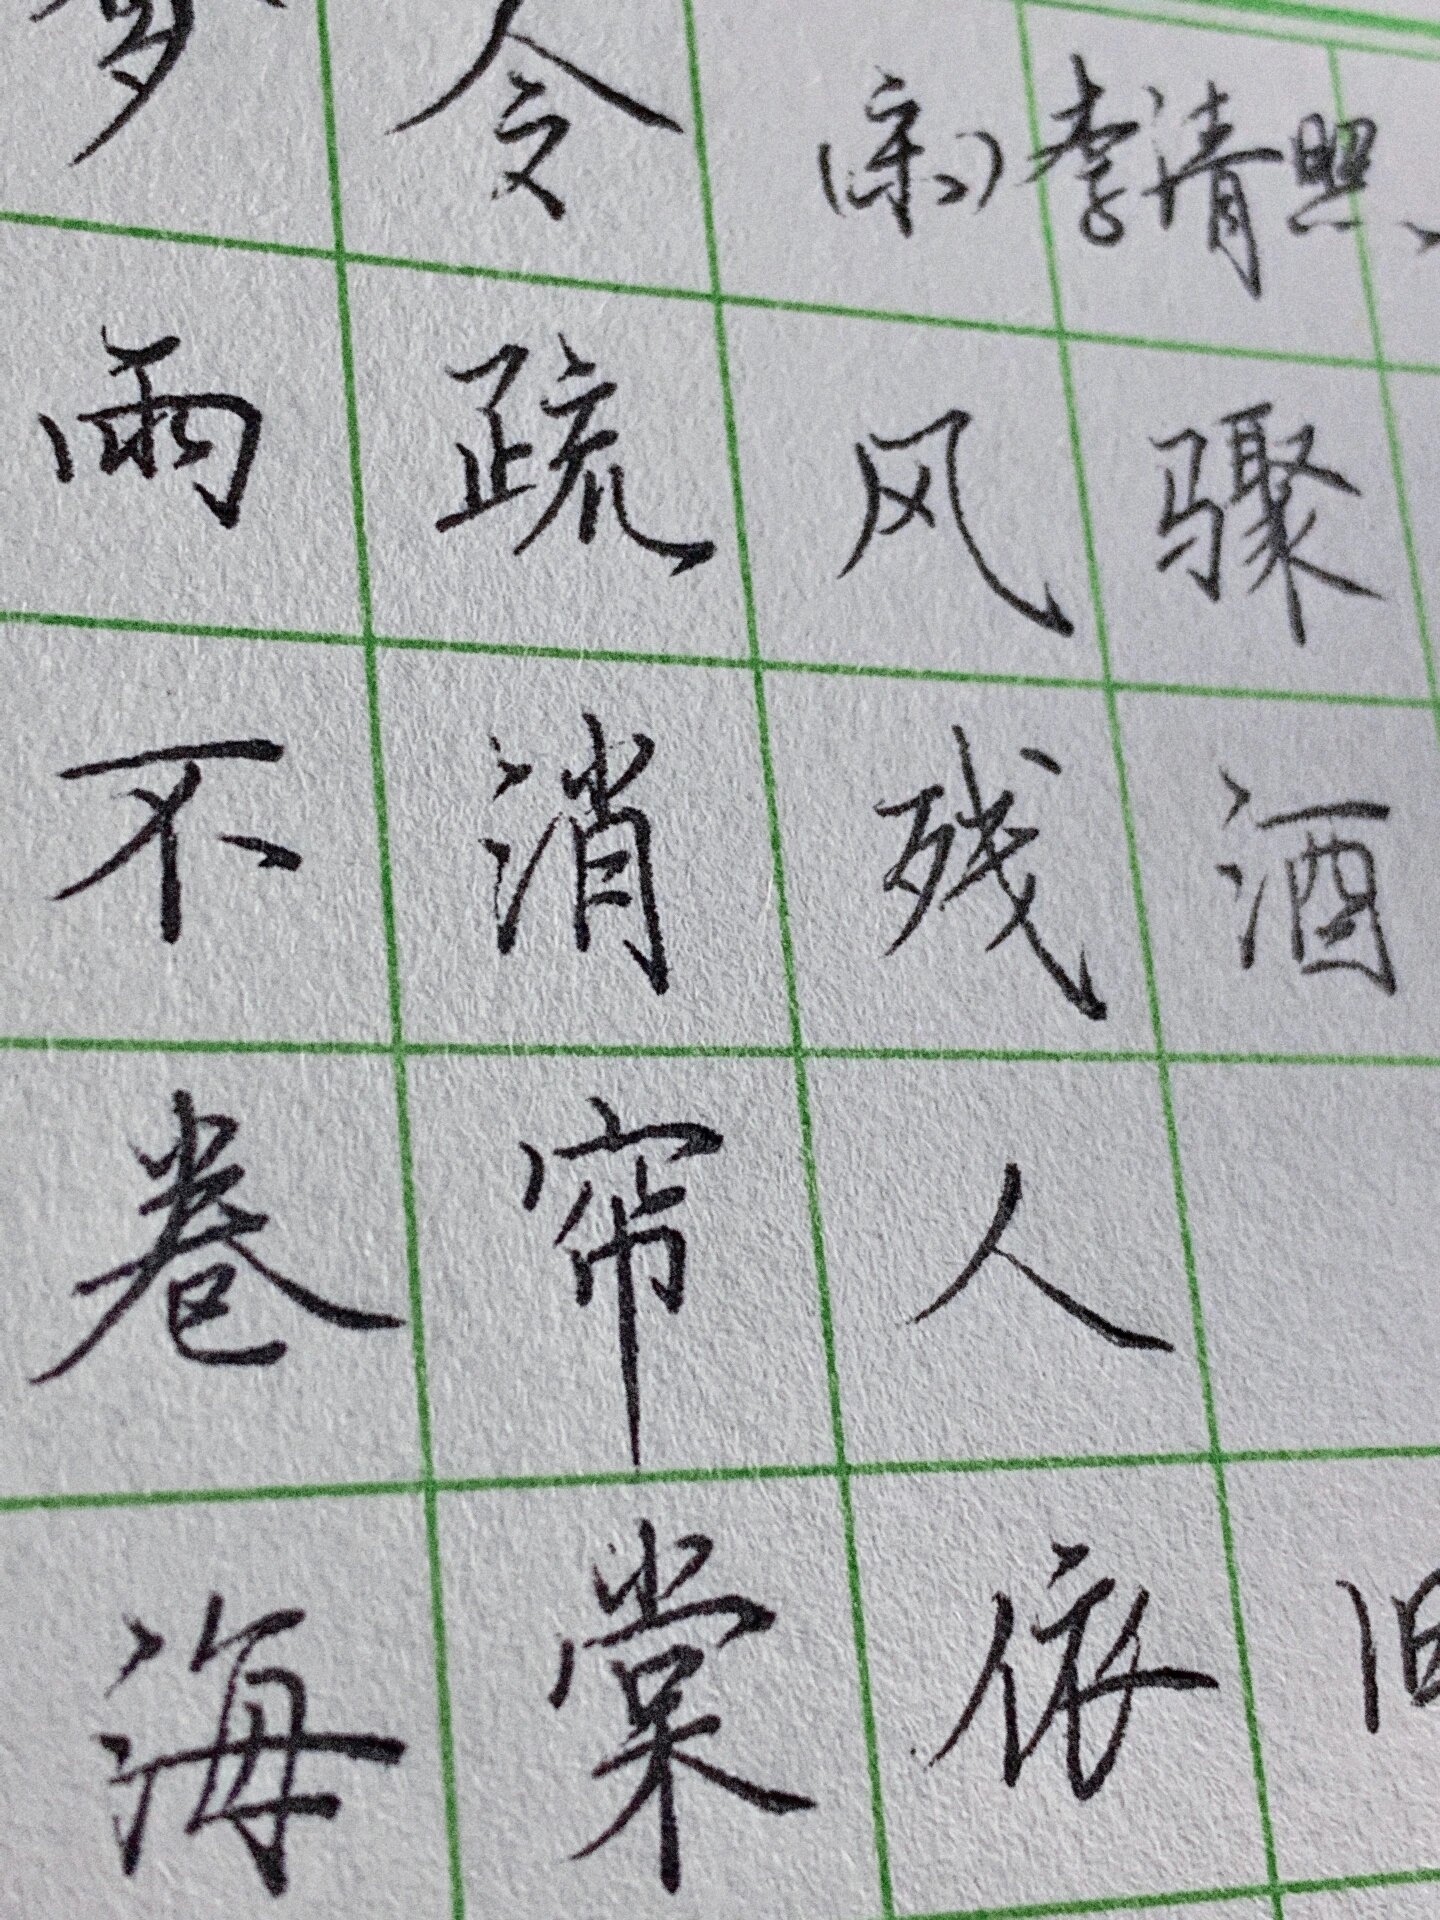 梦令 (宋) 李清照
雨疏风骤
不消残酒
卷帘人
海棠依旧